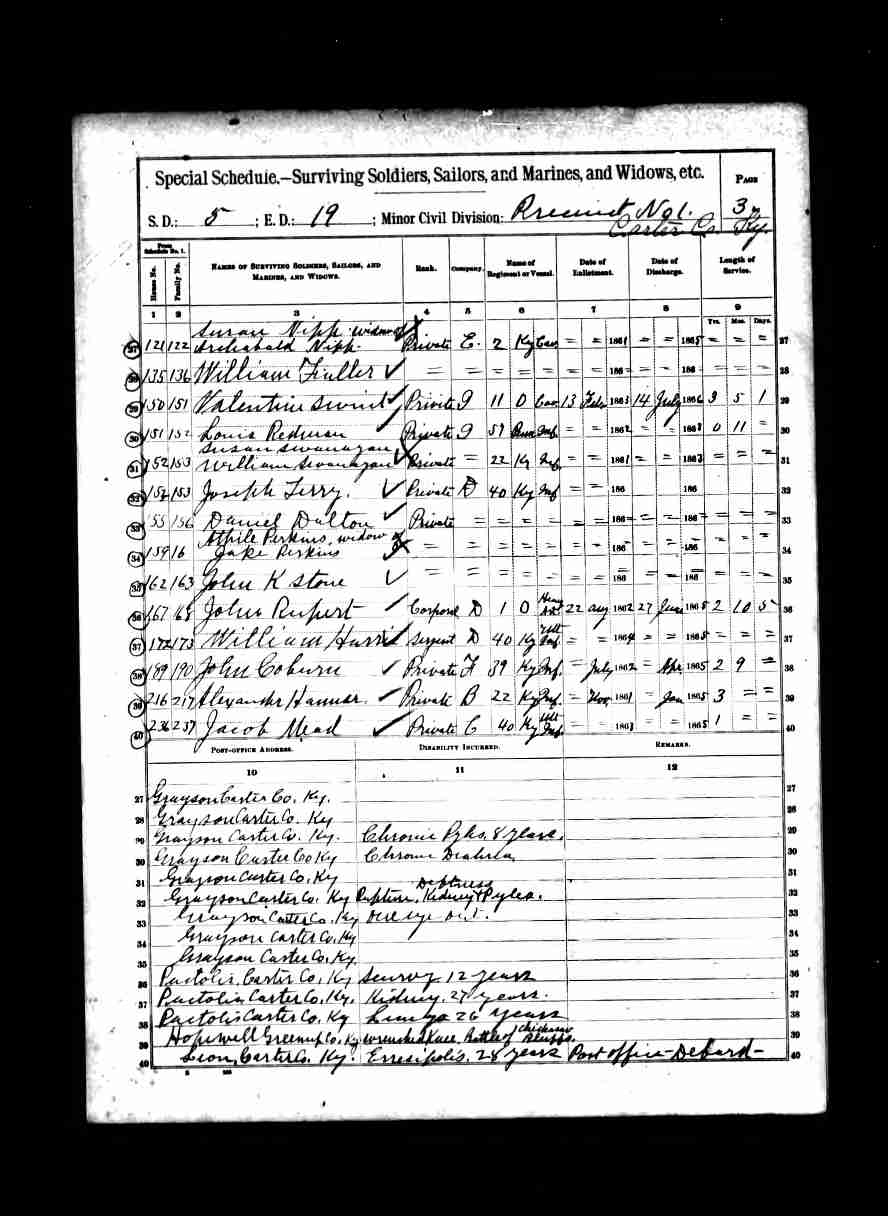 Special Schedule.—Surviving Soldiers, Sailors, and Marines, and Widows, etc.
PAGE 3
S. D.: 5 ; E. D.: 19 ; Minor Civil Division: Precinct No 1.
Carter Co. Ky.
From Schedule No. 1.
House No. Family No. NAMES OF SURVIVING SOLDIERS, SAILORS, AND MARINES, AND WIDOWS. Rank. Company. Name of Regiment or Vessel. Date of Enlistment. Date of Discharge. Length of Service.
1 2 3 4 5 6 7 8 9
Yrs. Mos. Days.
Susan Nipp widow of
27 121 122 Archibald Nipp Private E. 2 Ky Cav = = 1861 = = 1865 = = = 27
135 136 William Fuller = = = = = = = 186 = = = 186 = = = 28
29 150 151 Valentine Swint Private I 11 O Cav 13 Feb 1863 14 July 1866 3 5 1 29
30 151 152 Louis Redman Private I 57 Inf = = 1862 = = 0 11 = 30
Susan Swanagan
31 152 153 William Swanagan Private = 22 Ky Inf = = 1861 = = 1863 = = = 31
152 153 Joseph Terry. Private D 40 Ky Inf = = 186 186 32
33 155 156 Daniel Dalton Private = = = = = = 186 = = 186 = = = 33
Perkins, widow of
34 159 16 Jake Perkins = = = = = = = 186 = = 186 = = = 34
35 162 163 John K Stone = = = = = = = 186 = = 186 = = = 35
36 167 168 John Rupert Corporal D 1 O Heavy Art 22 Aug 1862 27 June 1865 2 10 5 36
37 172 173 William Harris Sergent D 40 Ky Mtt Inf = = 1864 = = 1865 = = = 37
38 189 190 John Coburn Private F 39 Ky Inf. = July 1862 = Apr. 1865 2 9 = 38
39 216 217 Alexander Hannar. Private B 22 Ky Inf. = Nov. 1861 = Jan 1865 3 = = 39
40 236 237 Jacob Mead Private C 40 Ky Mtt Inf. = = 1863 = = 1865 1 = = 40
POST-OFFICE ADDRESS. DISABILITY INCURRED. REMARKS.
10 11 12
27 Grayson Carter Co. Ky. 27
28 Grayson Carter Co. Ky 28
29 Grayson Carter Co. Ky. Chronic Pyles, 8 years. 29
30 Grayson Carter Co Ky Chronic 30
31 Grayson Carter Co. Ky 31
32 Grayson Carter Co. Ky Rupture, Kidney & Pyles. 32
33 Grayson Carter Co. Ky eye out. 33
34 Grayson Carter Co. Ky 34
35 Grayson Carter Co. Ky. 35
36 Pactolis, Carter Co, Ky Scurvy 12 years 36
37 Pactolis Carter Co, Ky. Kidney, 27 years. 37
38 Pactolis Carter Co, Ky Lungs 26 years 38
39 Hopewell Greenup Co, Ky wrenched Knee, Battle of Chickasaw Bluffs. 39
40 Leon, Carter Co. Ky. Erresipelis, 28 years Post office - Debord - 40